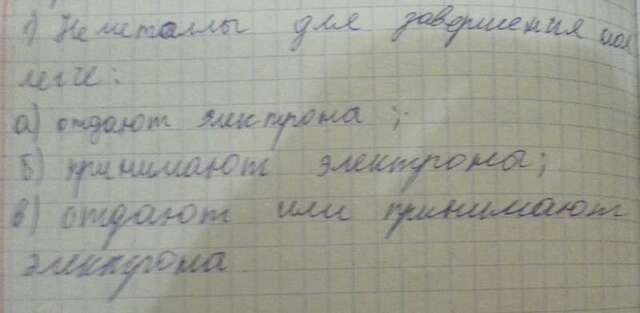 1) Неметаллы для завершения
легче:
а) отдают электрона;
б) принимают электрона;
в) отдают или принимают
электрона